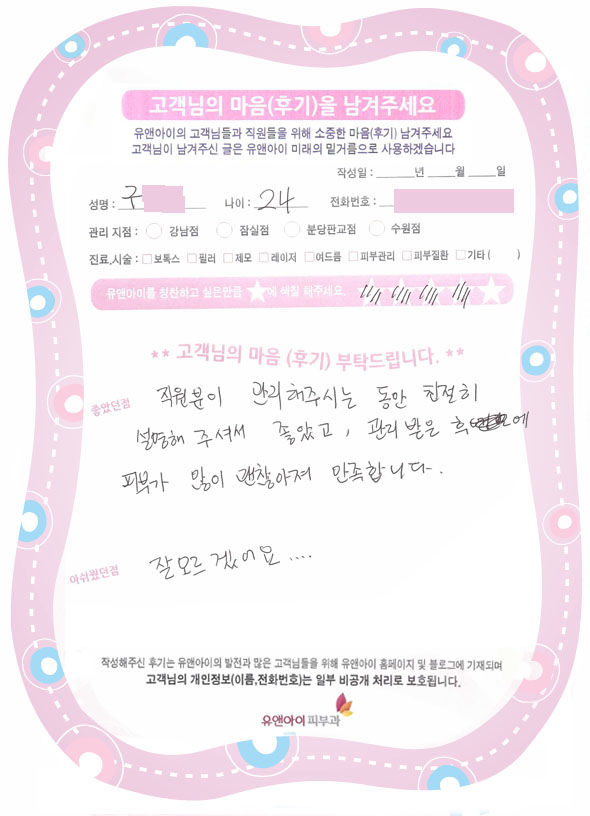 고객님의 마음(후기)을 남겨주세요
유앤아이의 고객님들과 직원들을 위해 소중한 마음(후기) 남겨주세요
고객님이 남겨주신 글은 유앤아이 미래의 밑거름으로 사용하겠습니다
작성일 : ______년 _____월 _____일
성명 : 구 나이 : 24 전화번호 :
관리 지점 : 강남점 잠실점 분당판교점 수원점
진료,시술 : □보톡스 □필러 □제모 □레이저 □여드름 □피부관리 □피부질환 □기타 ( )
유앤아이를 칭찬하고 싶은만큼 ★에 색칠 해주세요.
** 고객님의 마음 (후기) 부탁드립니다. **
좋았던점 직원분이 관리해주시는 동안 친절히
설명해 주셔서 좋았고, 관리 받은 후 에
피부가 많이 괜찮아져 만족합니다.
아쉬웠던점 잘 모르겠어요 ....
작성해주신 후기는 유앤아이의 발전과 많은 고객님들을 위해 유앤아이 홈페이지 및 블로그에 기재되며
고객님의 개인정보(이름,전화번호)는 일부 비공개 처리로 보호됩니다.
유앤아이피부과